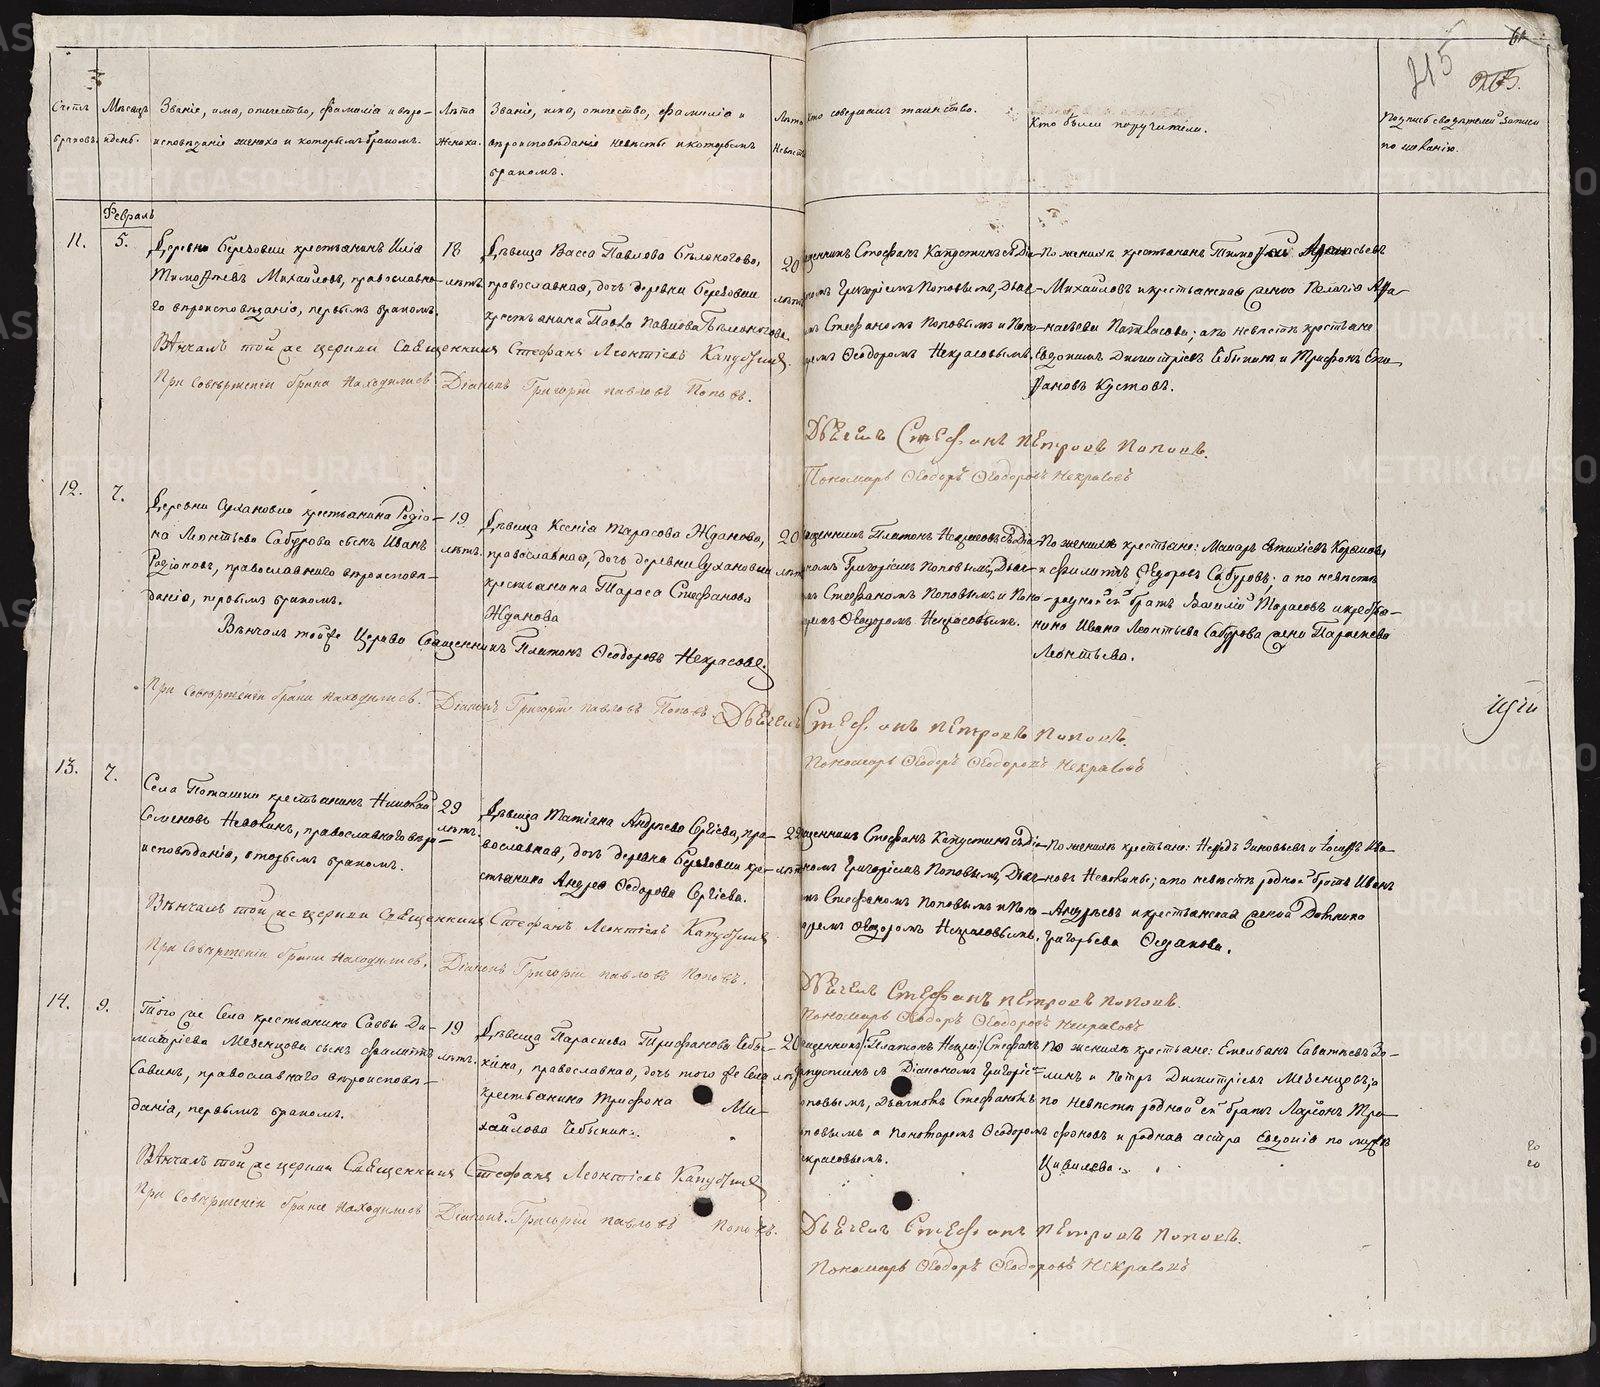 Счетъ браковъ.
Мѣсяцъ и день.
Званіе, имя, отчество, фамилія и вѣро-
исповѣданіе жениха и которымъ бракомъ.
Лѣта
жениха.
Званіе, имя, отчество, фамилія и
вѣроисповѣданіе невѣсты и которымъ
бракомъ.
Лѣта
невѣсты
Кто совершалъ таинство.
Кто были поручители.
Подпись свидѣтелей записи
по желанію.
215
Февраль
11.
5.
Деревни Березовки крестьянинъ Илія
Тимофеевъ Михайловъ, православна-
го вѣроисповѣданія, первымъ бракомъ.
18
лѣтъ
Дѣвица Васса Павлова Бѣлоногова,
православная, дочь деревни Березовки
крестьянина Павла Павлова Бѣлоногова.
20
лѣтъ
щенникъ Стефанъ Капустинъ съ Діа-
номъ Григоріемъ Поповымъ, Дьяч-
мъ Стефаномъ Поповымъ и Поно-
ремъ Ѳеодоромъ Некрасовымъ.
По женихѣ крестьяне Тимофей Афанасьевъ
Михайловъ и крестьянская жена Пелагія Афа-
насьева; а по невѣстѣ крестьяне
Евдокимъ Димитріевъ Чебыкинъ и Трифонъ Сте-
фановъ Кустовъ.
Вѣнчалъ той же церкви Священникъ Стефанъ Леонтіевъ Капустинъ.
При Совершеніи брака Находились Діаконъ Григорій павловъ Поповъ.
Дьячекъ Стефанъ пЕтровъ поповъ.
Пономарь Ѳеодоръ Ѳеодоровъ Некрасовъ
12.
7.
Деревни Сухановки крестьянина Родіо-
на Леонтьева Сабурова сынъ Иванъ
Родіоновъ, православнаго вѣроисповѣ-
данія, первымъ бракомъ.
19
лѣтъ.
Дѣвица Ксенія Тарасова Жданова,
православная, дочь деревни Сухановки
крестьянина Тараса Стефанова
Жданова
20
лѣтъ
щенникъ Платонъ Некрасовъ съ Діа-
номъ Григоріемъ Поповымъ, Дьяч-
мъ Стефаномъ Поповымъ и Поно-
ремъ Ѳеодоромъ Некрасовымъ.
По женихѣ крестьяне:
и Филиппъ Ѳедоровъ Сабуровъ; а по невѣстѣ
родной ей братъ Василій Тарасовъ и крестья-
нина Ивана Леонтьева Сабурова жена Параскева
Леонтьева.
Вѣнчалъ той же Церкви Священникъ Платонъ Ѳеодоровъ Некрасовъ.
При Совершеніи брака Находились. Діаконъ Григорій павловъ Поповъ. Дьячекъ Стефанъ пЕтровъ поповъ.
Пономарь Ѳеодоръ Ѳеодоровъ Некрасовъ
13.
7.
Села Поташки крестьянинъ Николай
Семеновъ Невокинъ, православнаго вѣро-
исповѣданія, вторымъ бракомъ.
29
лѣтъ.
Дѣвица Татіяна Андреева Сергіева, пра-
вославная, дочь деревни Березовки кре-
стьянина Андрея Ѳедорова Сергіева.
лѣтъ
щенникъ Стефанъ Капустинъ съ Діа-
номъ Григоріемъ Поповымъ, Дьяч-
мъ Стефаномъ Поповымъ и Поно-
ремъ Ѳеодоромъ Некрасовымъ.
По женихѣ крестьяне: Зиновьевъ и Іосифъ Ива-
новъ Невокины; а по невѣстѣ родной братъ Иванъ
Андреевъ и крестьянская жена Домника
Григорьева
Вѣнчалъ той же церкви Священникъ Стефанъ Леонтіевъ Капустинъ
При Совершеніи брака Находились. Діаконъ Григорій павловъ Поповъ.
Дьячекъ Стефанъ пЕтровъ поповъ.
Пономарь Ѳеодоръ Ѳеодоровъ Некрасовъ
14.
9.
Того же Села крестьянина Саввы Ди-
митріева Мезенцова сынъ Филиппъ
Савинъ, православнаго вѣроисповѣ-
данія, первымъ бракомъ.
19
лѣтъ.
Дѣвица Параскева Трифанова Чебы-
кина, православная, дочь того же Села
крестьянина Трифона Ми-
хайлова Чебыкина.
20
щенники: Платонъ и Стефанъ
пустинъ съ Діакономъ Григорі-
оповымъ, Дьячкомъ Стефаномъ
повымъ и Пономаремъ Ѳеодоромъ
красовымъ.
По женихѣ крестьяне: Емельянъ Савитьевъ Зо-
линъ и Петръ Димитріевъ Мезенцовъ; а
по невѣстѣ родной ей братъ Ларіонъ Три-
фановъ и родная сестра Евдокія по мужѣ
Вѣнчалъ той же церкви Священникъ Стефанъ Леонтіевъ Капустинъ
При Совершеніи брака Находились Діаконъ Григорій павловъ поповъ.
Дьячекъ Стефанъ пЕтровъ поповъ.
Пономарь Ѳеодоръ Ѳеодоровъ Некрасовъ